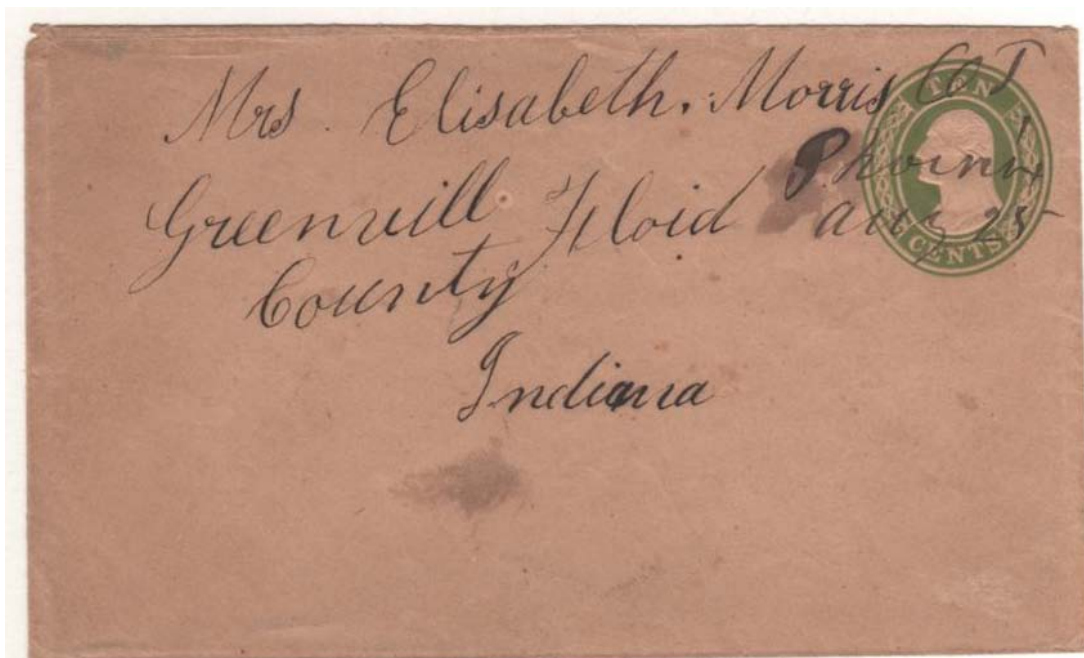 Mrs. Elisabeth. Morris
Greenvill Floid
County
Indiana
O T
Phoenix
Aug 25
TEN
CENTS